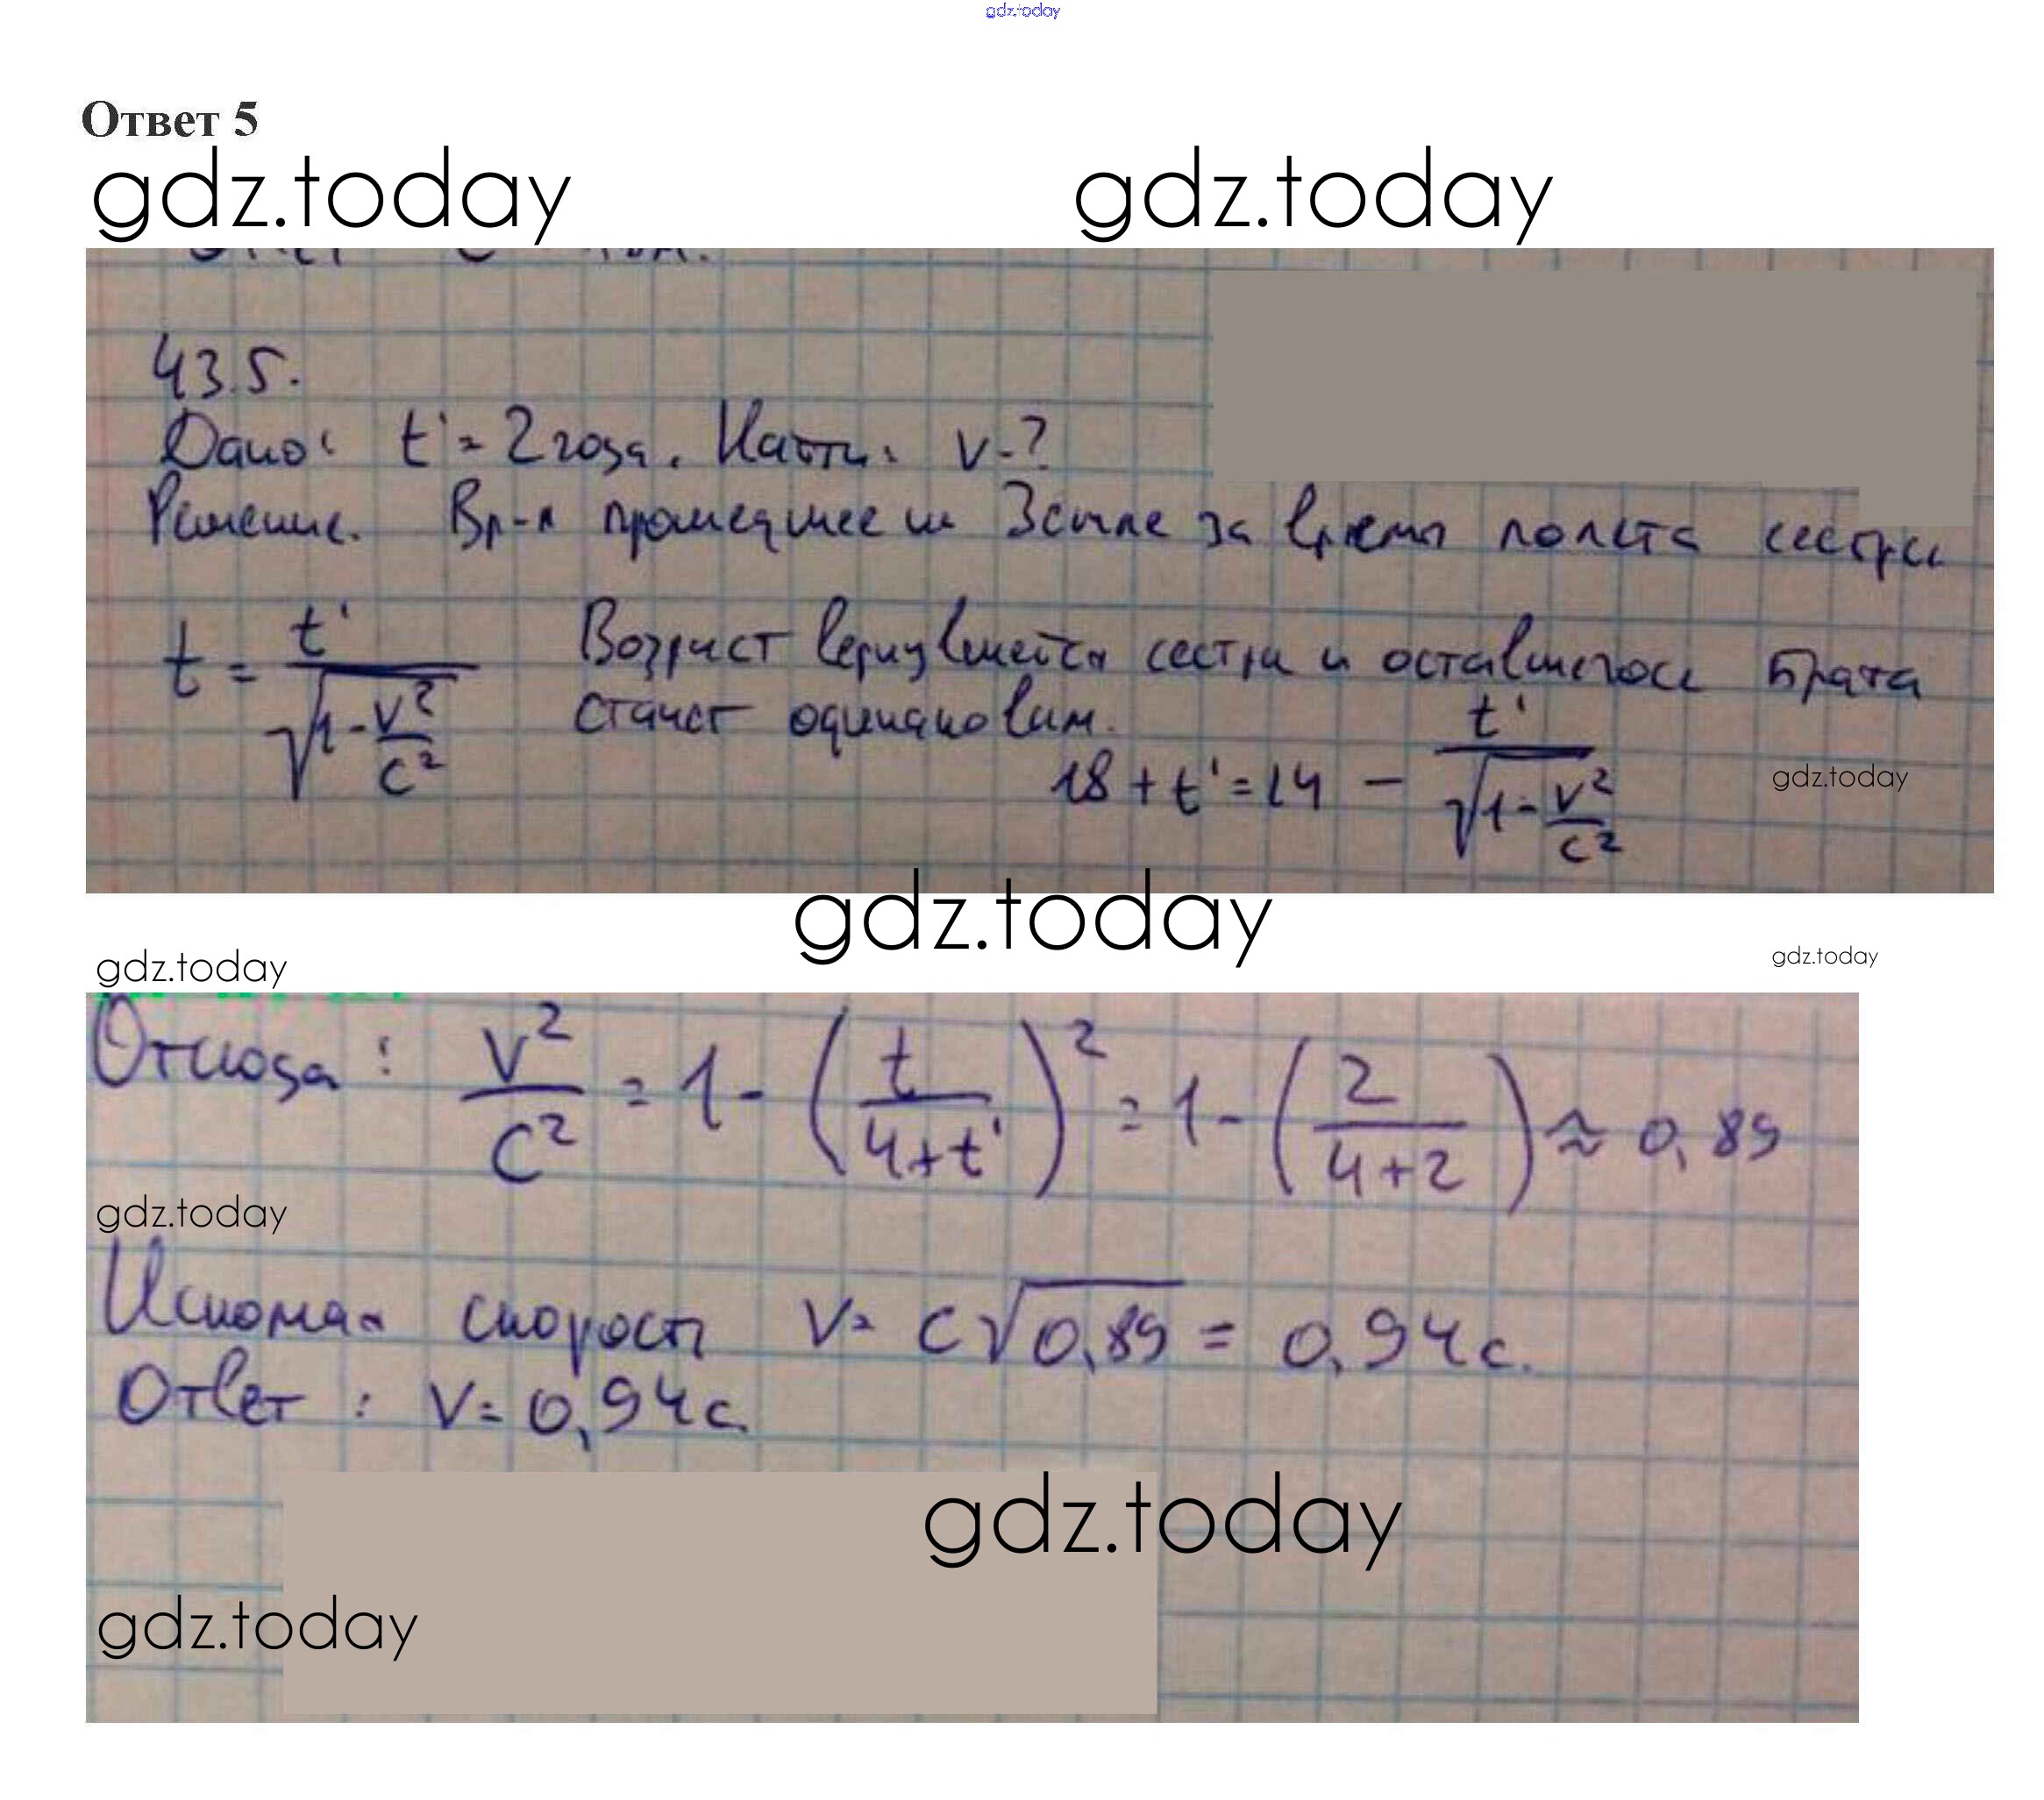 gdz.today
Ответ 5
gdz.today gdz.today
43.5.
Дано: t' = 2 года. Найти: v-?
Решение. Вр-я прошедшее на Земле за время полета сестры
t = t' / √(1 - v²/c²) Возраст вернувшейся сестры и оставшегося брата
станет одинаковым.
18 + t' = 14 - t' / √(1 - v²/c²)
gdz.today
gdz.today
gdz.today gdz.today
Отсюда: v²/c² = 1 - (t / 4+t')² = 1 - (2 / 4+2) ≈ 0,89
gdz.today
Искомая скорость v = c√0,89 = 0,94c.
Ответ: v = 0,94c.
gdz.today
gdz.today